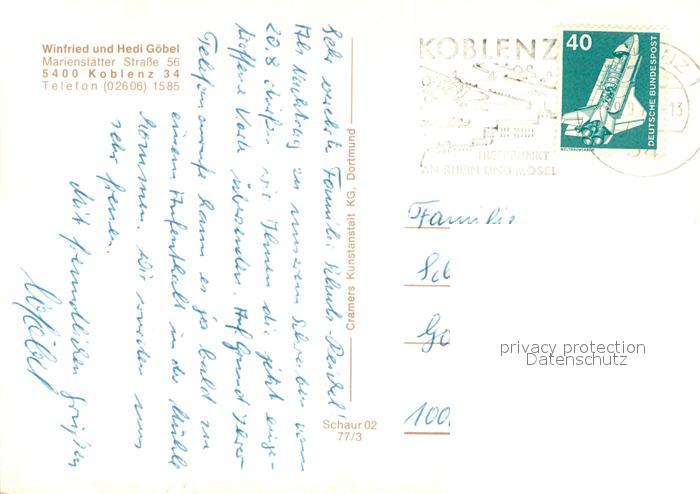 Winfried und Hedi Göbel
Marienstätter Straße 56
5400 Koblenz 34
Telefon (02606) 1585
Sehr verehrte Familie
Als Nachtrag zu unserem Schreiben vom
20.8. dürfen wir Ihnen die jetzt einge-
troffene Karte übersenden. Auf Grund Ihres
Telefonanrufs kann es ja bald zu
einem Aufenthalt in der Mühle
kommen. Wir würden uns
sehr freuen.
Mit freundlichen Grüßen
Cramers Kunstanstalt KG, Dortmund
Schaur 02
77/3
KOBLENZ
TREFFPUNKT
AN RHEIN UND MOSEL
40
DEUTSCHE BUNDESPOST
WELTRAUMLABOR
13
54
Familie
Sch
Go
100
privacy protection
Datenschutz